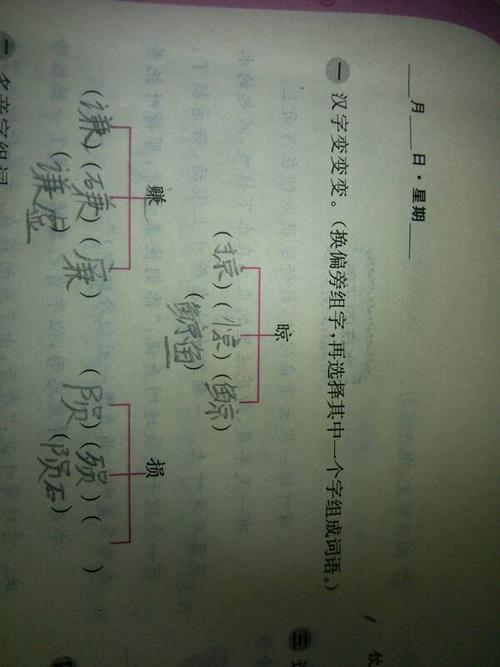 ___月___日·星期___
一 汉字变变变。(换偏旁组字,再选择其中一个字组成词语。)
晾
(掠)(惊)(鲸)
(鲸鱼)
赚
(谦)(磏)(廉)
(谦虚)
损
(陨)(殒)( )
(陨石)
三